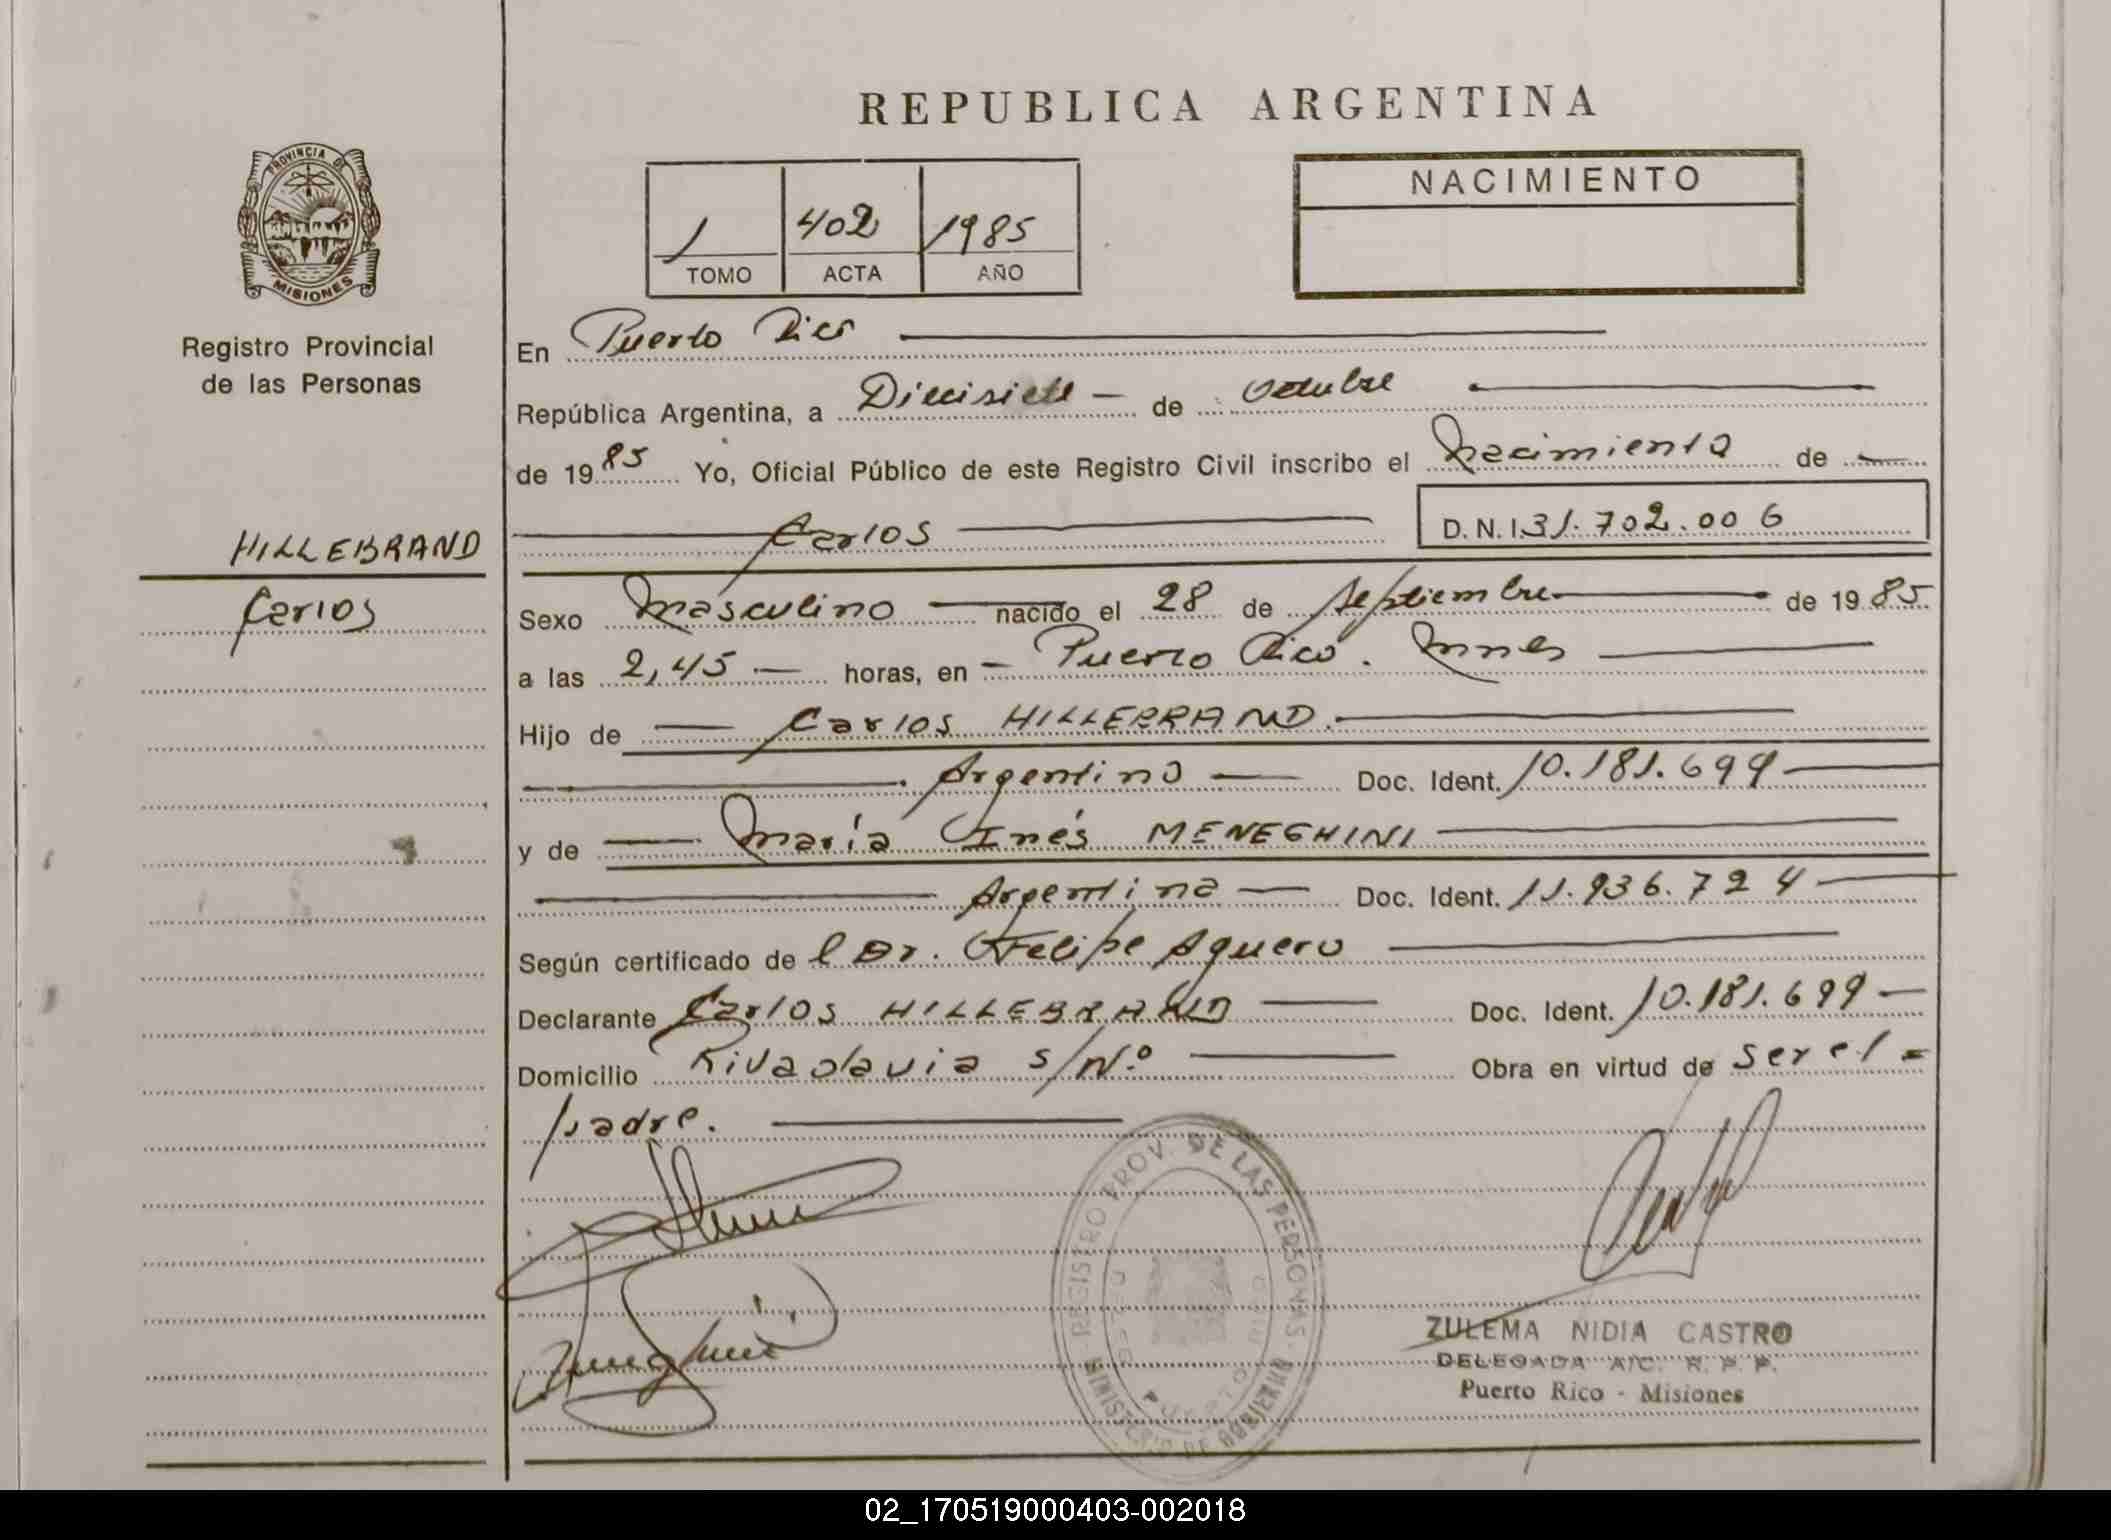 REPUBLICA ARGENTINA
PROVINCIA DE
MISIONES
Registro Provincial
de las Personas
1 402 1985
TOMO ACTA AÑO
NACIMIENTO
En Puerto Rico
República Argentina, a Diecisiete de Octubre
de 1985 Yo, Oficial Público de este Registro Civil inscribo el Nacimiento de
Carlos D.N.I. 31.702.006
HILLEBRAND
Carlos
Sexo Masculino nacido el 28 de Septiembre de 1985
a las 2,45 horas, en Puerto Rico. Mnes
Hijo de Carlos HILLEBRAND.
Argentino Doc. Ident. 10.181.699
y de María Inés MENEGHINI
Argentina Doc. Ident. 11.936.724
Según certificado del Dr. Felipe Aguero
Declarante Carlos HILLEBRAND Doc. Ident. 10.181.699
Domicilio Rivadavia s/Nº Obra en virtud de ser el
padre.
REGISTRO PROV. DE LAS PERSONAS
MINISTERIO DE GOBIERNO
PUERTO RICO
ZULEMA NIDIA CASTRO
DELEGADA A/C. R. P. P.
Puerto Rico - Misiones
02_170519000403-002018